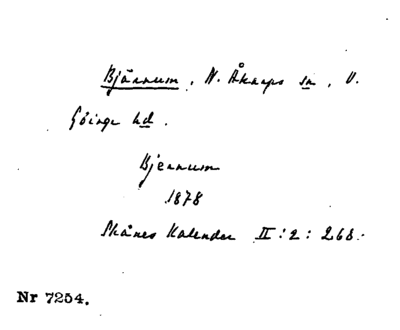 Bjärnum, N. Åkarps sn, V.
Göinge hd.
Bjernum
1878
Skånes Kalender II:2: 268.
Nr 7254.